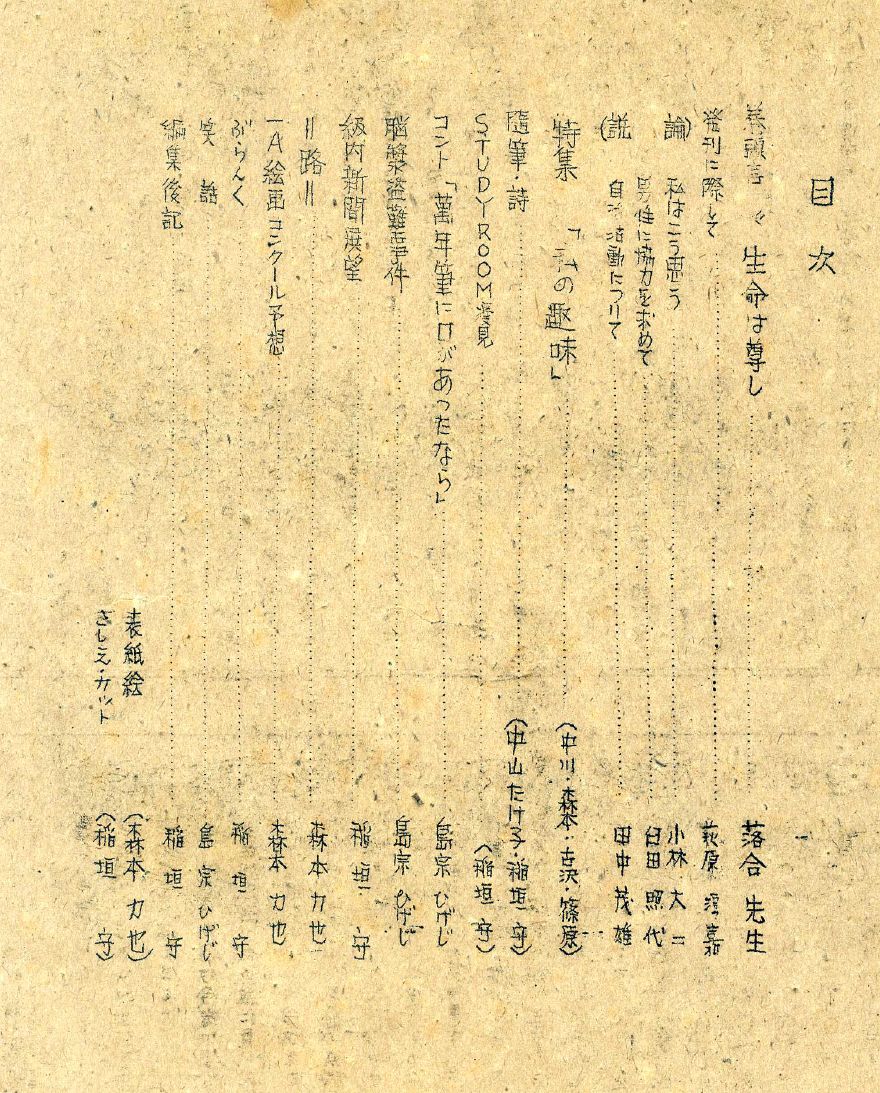 目次
巻頭言 〃生命は尊し 落合先生
発刊に際して 萩原 嘉
(論 私はこう思う 小林大二
男性に協力を求めて 臼田照代
説) 自治活動について 田中茂雄
特集 「私の趣味」 (中川・森本・古沢・篠原)
随筆・詩 (中山たけ子・稲垣守)
STUDYROOM発見 (稲垣守)
コント「萬年筆に口があつたなら」 島宗ひげじ
脳漿盗難事件 島宗ひげじ
級内新聞展望 稲垣守
〃路〃 森本力也
一A絵画コンクール予想 森本力也
ぶらんく 稲垣守
笑話 島宗ひげじ
編集後記 稲垣守
表紙絵 (森本力也)
さしえ・カット (稲垣守)